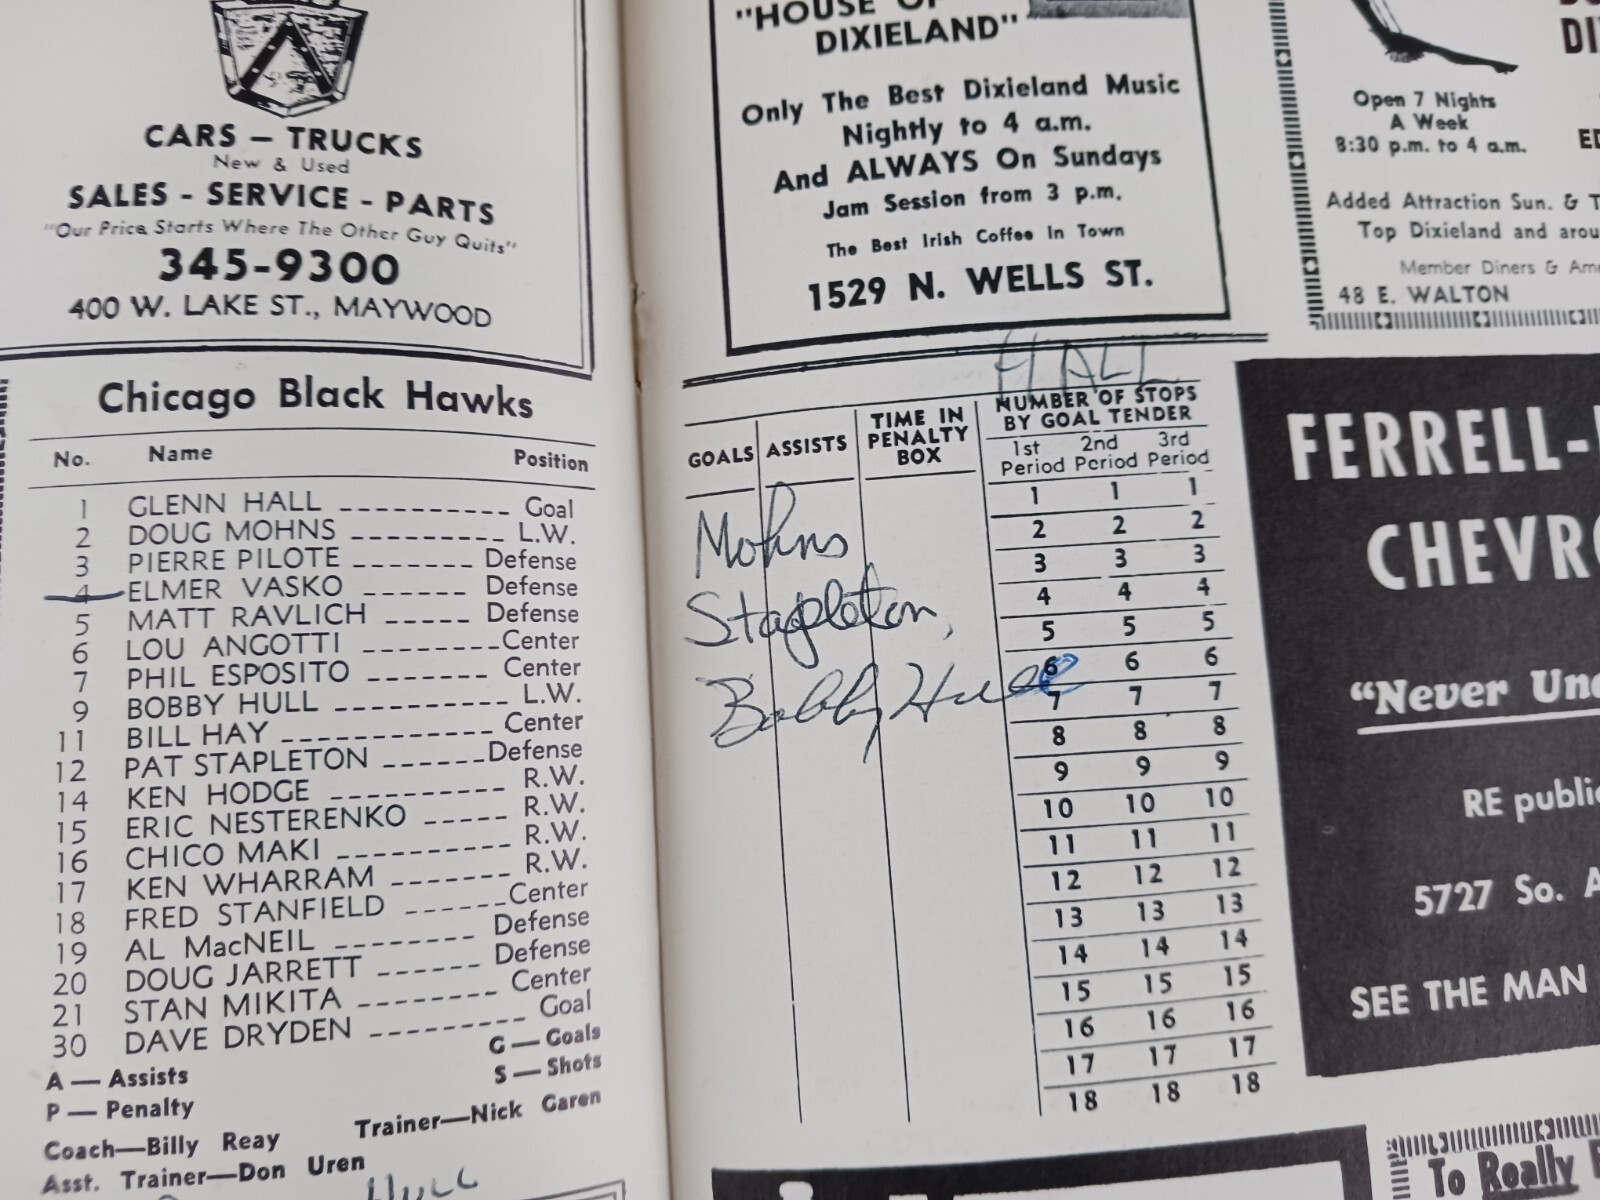 CARS — TRUCKS
New & Used
SALES - SERVICE - PARTS
"Our Price Starts Where The Other Guy Quits"
345-9300
400 W. LAKE ST., MAYWOOD
Chicago Black Hawks
No. Name Position
1 GLENN HALL Goal
2 DOUG MOHNS L.W.
3 PIERRE PILOTE Defense
4 ELMER VASKO Defense
5 MATT RAVLICH Defense
6 LOU ANGOTTI Center
7 PHIL ESPOSITO Center
9 BOBBY HULL L.W.
11 BILL HAY Center
12 PAT STAPLETON Defense
14 KEN HODGE R.W.
15 ERIC NESTERENKO R.W.
16 CHICO MAKI R.W.
17 KEN WHARRAM R.W.
18 FRED STANFIELD Center
19 AL MacNEIL Defense
20 DOUG JARRETT Defense
21 STAN MIKITA Center
30 DAVE DRYDEN Goal
G — Goals
A — Assists
S — Shots
P — Penalty
Trainer—Nick Garen
Coach—Billy Reay
Asst. Trainer—Don Uren
HULL
"HOUSE OF
DIXIELAND"
Only The Best Dixieland Music
Nightly to 4 a.m.
And ALWAYS On Sundays
Jam Session from 3 p.m.
The Best Irish Coffee In Town
1529 N. WELLS ST.
Open 7 Nights
A Week
8:30 p.m. to 4 a.m.
Added Attraction Sun. &
Top Dixieland and
Member Diners &
48 E. WALTON
HALL
GOALS ASSISTS TIME IN PENALTY BOX NUMBER OF STOPS BY GOAL TENDER
1st Period 2nd Period 3rd Period
1 1 1
2 2 2
3 3 3
4 4 4
5 5 5
6 6 6
7 7 7
8 8 8
9 9 9
10 10 10
11 11 11
12 12 12
13 13 13
14 14 14
15 15 15
16 16 16
17 17 17
18 18 18
Mohns
Stapleton,
Bobby Hull
FERRELL-
CHEVRO
"Never
RE
5727 So.
SEE THE MAN
To Really